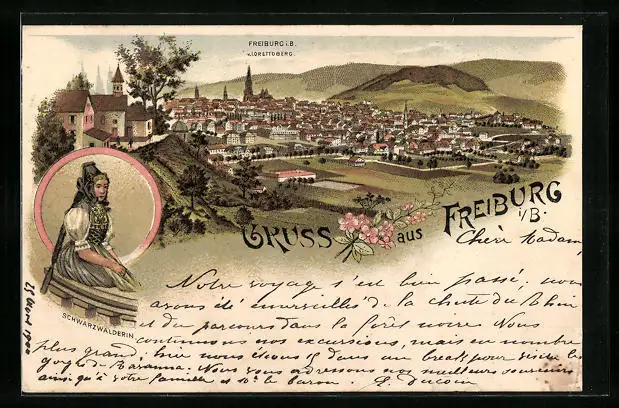 FREIBURG i. B.
v. LORETTOBERG.
GRUSS aus FREIBURG i/B.
SCHWARZWÄLDERIN
Chère Madame,
Notre voyage s'est bien passé; nous
avons été émerveillés de la chute du Rhin
et du parcours dans la forêt noire. Nous
continuons nos excursions, mais en nombre
plus grand, hier nous étions 9 dans un break, pour visiter les
gorges de Ravenna. Nous vous adressons nos meilleurs souvenirs
ainsi qu'à votre famille et le baron.
1900